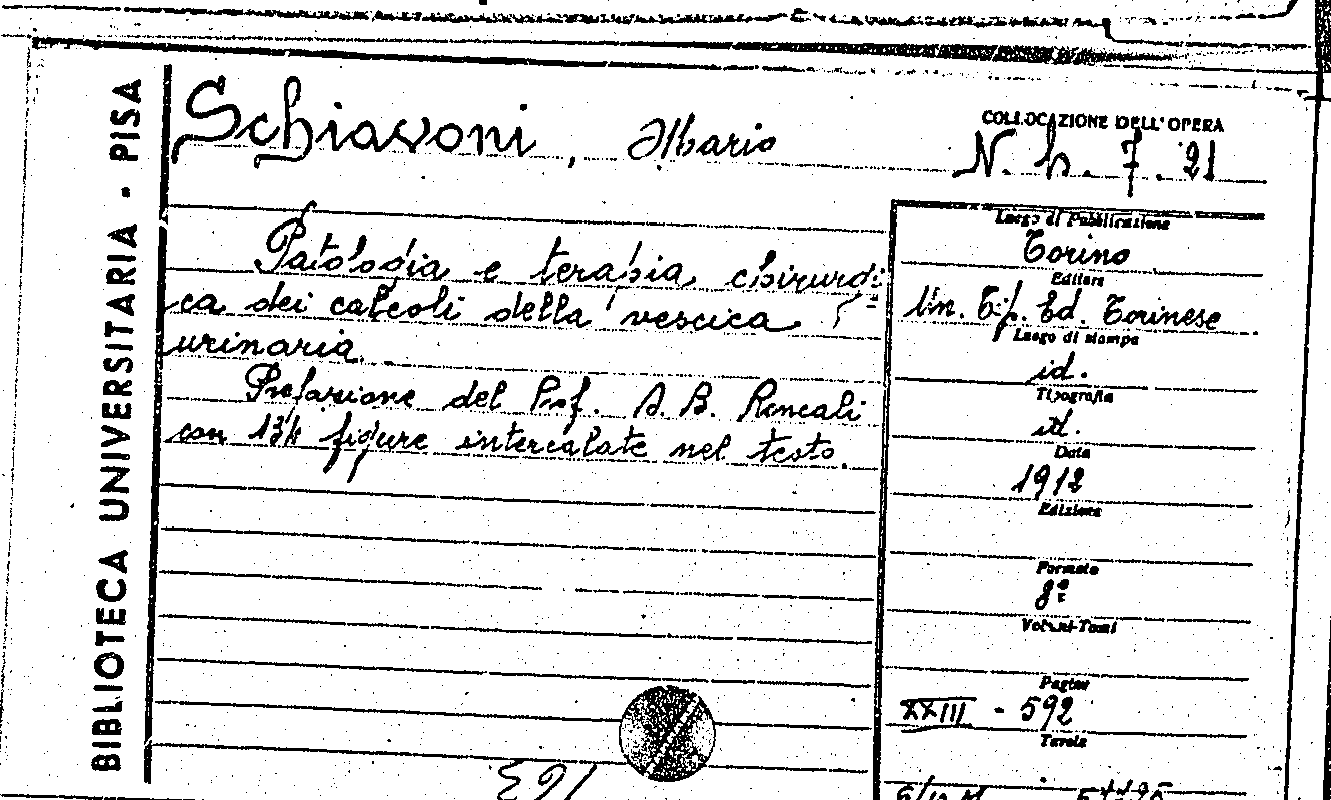 BIBLIOTECA UNIVERSITARIA - PISA
Schiavoni, Mario
COLLOCAZIONE DELL'OPERA
N. h. 7. 21
Patologia e terapia chirurgi=
ca dei calcoli della vescica
urinaria.
Prefazione del Prof. D. B. Roncali
con 134 figure intercalate nel testo.
Luogo di Pubblicazione
Torino
Editore
Un. Tip. Ed. Torinese
Luogo di stampa
id.
Tipografia
id.
Data
1912
Edizione
Formato
8º
Volumi-Tomi
Pagine
XXIII - 592
Tavole